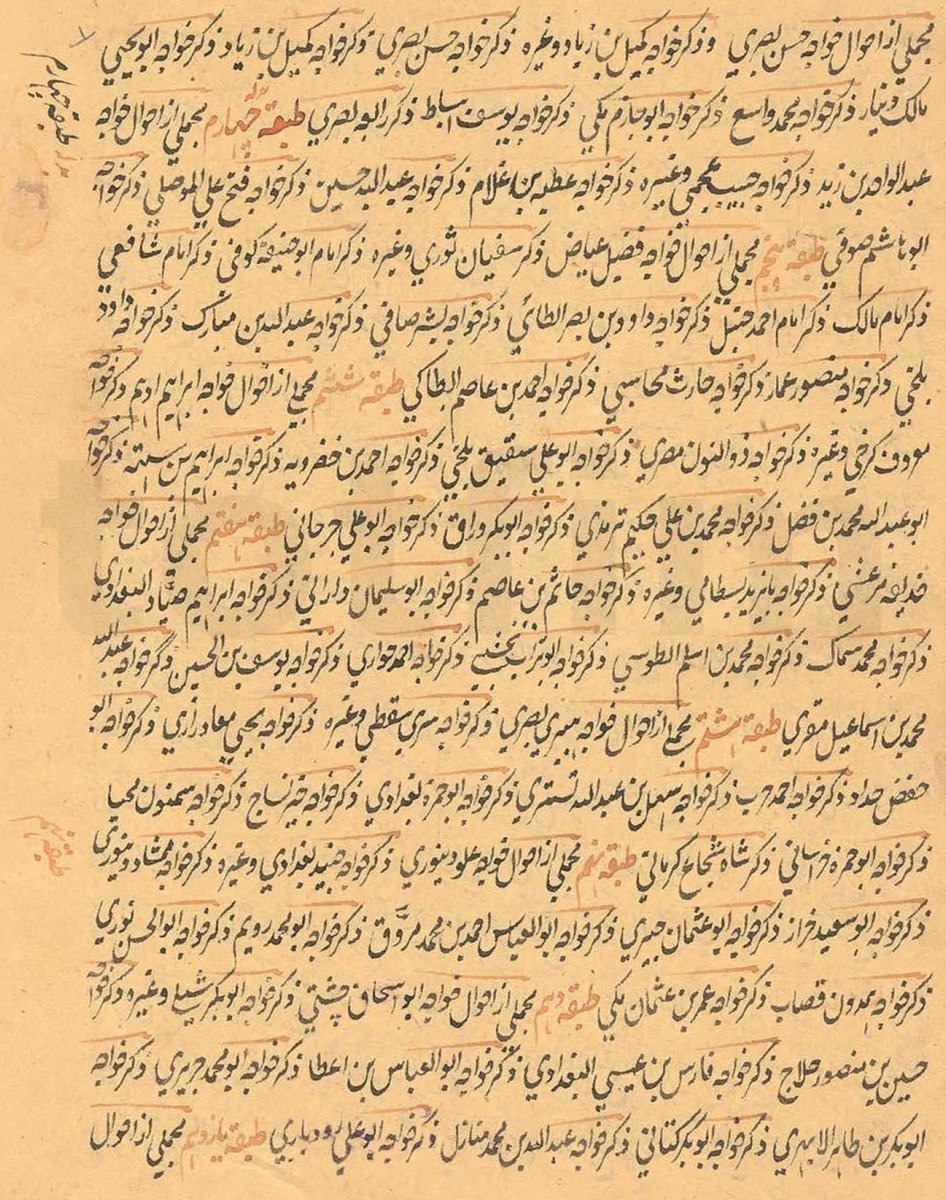 مجملی از احوال خواجه حسن بصری و ذکر خواجه کمیل بن زیاد وغیره ذکر خواجه حسن بصری ذکر خواجه کمیل بن زیاد ذکر خواجه ابو یحیی
مالک دینار ذکر خواجه محمد واسع ذکر خواجه ابو حازم مکی ذکر خواجه یوسف اسباط ذکر رابعه بصری طبقه چهارم مجملی از احوال خواجه
عبد الواحد بن زید ذکر خواجه حبیب عجمی وغیره ذکر خواجه عطیه بن اعلام ذکر خواجه عبد الله حسین ذکر خواجه فتح علی الموصلی ذکر خواجه
ابو هاشم صوفی طبقه پنجم مجملی از احوال خواجه فضیل عیاض ذکر سفیان ثوری وغیره ذکر امام ابو حنیفه کوفی ذکر امام شافعی
ذکر امام مالک ذکر امام احمد حنبل ذکر خواجه داوود بن بصر الطائی ذکر خواجه بشر صافی ذکر خواجه عبد الله بن مبارک ذکر خواجه داود
بلخی ذکر خواجه منصور عمار ذکر خواجه حارث محاسبی ذکر خواجه احمد بن عاصم البطاکی طبقه ششم مجملی از احوال خواجه ابراهیم ادهم ذکر خواجه
معروف کرخی وغیره ذکر خواجه ذو النون مصری ذکر خواجه ابو علی شقیق بلخی ذکر خواجه احمد بن خضرویه ذکر خواجه ابراهیم بن سسته ذکر خواجه
ابو عبد الله محمد بن فضل ذکر خواجه محمد بن علی حکیم ترمذی ذکر خواجه ابو بکر وراق ذکر خواجه ابو علی جرجانی طبقه هفتم مجملی از احوال خواجه
حذیفه مرعشی ذکر خواجه بایزید بسطامی وغیره ذکر خواجه حاتم بن عاصم ذکر خواجه ابو سلیمان دارائی ذکر خواجه ابراهیم صیاد البغدادی
ذکر خواجه محمد سماک ذکر خواجه محمد بن اسلم الطوسی ذکر خواجه ابو تراب نخشبی ذکر خواجه احمد حواری ذکر خواجه یوسف بن الحسین ذکر خواجه عبد الله
محمد بن اسماعیل مقری طبقه هشتم مجملی از احوال خواجه هبیری بصری ذکر خواجه سری سقطی وغیره ذکر خواجه یحیی معاد رازی ذکر خواجه ابو
حفض حداد ذکر خواجه احمد حرب ذکر خواجه سهل بن عبد الله تستری ذکر خواجه ابو حمزه بغدادی ذکر خواجه خیر نساج ذکر خواجه سمنون محبا
ذکر خواجه ابو حمزه خراسانی ذکر شاه شجاع کرمانی طبقه نهم مجملی از احوال خواجه علو دینوری ذکر خواجه جنید بغدادی وغیره ذکر خواجه ممشاد دینوری
ذکر خواجه ابو سعید خراز ذکر خواجه ابو عثمان حیری ذکر خواجه ابو العباس احمد بن محمد مروق ذکر خواجه ابو محمد رویم ذکر خواجه ابو الحسن نوری
ذکر خواجه حمدون قصاب ذکر خواجه عمر بن عثمان مکی طبقه دهم مجملی از احوال خواجه ابو اسحاق چشتی ذکر خواجه ابو بکر شبلی وغیره ذکر خواجه
حسین بن منصور حلاج ذکر خواجه فارس بن عیسی البغدادی ذکر خواجه ابو العباس بن اعطا ذکر خواجه ابو محمد جریری ذکر خواجه
ابو بکر بن طاهر الابهری ذکر خواجه ابو بکر کتانی ذکر خواجه عبد الله بن محمد منازل ذکر خواجه ابو علی رودباری طبقه یازدهم مجملی از احوال